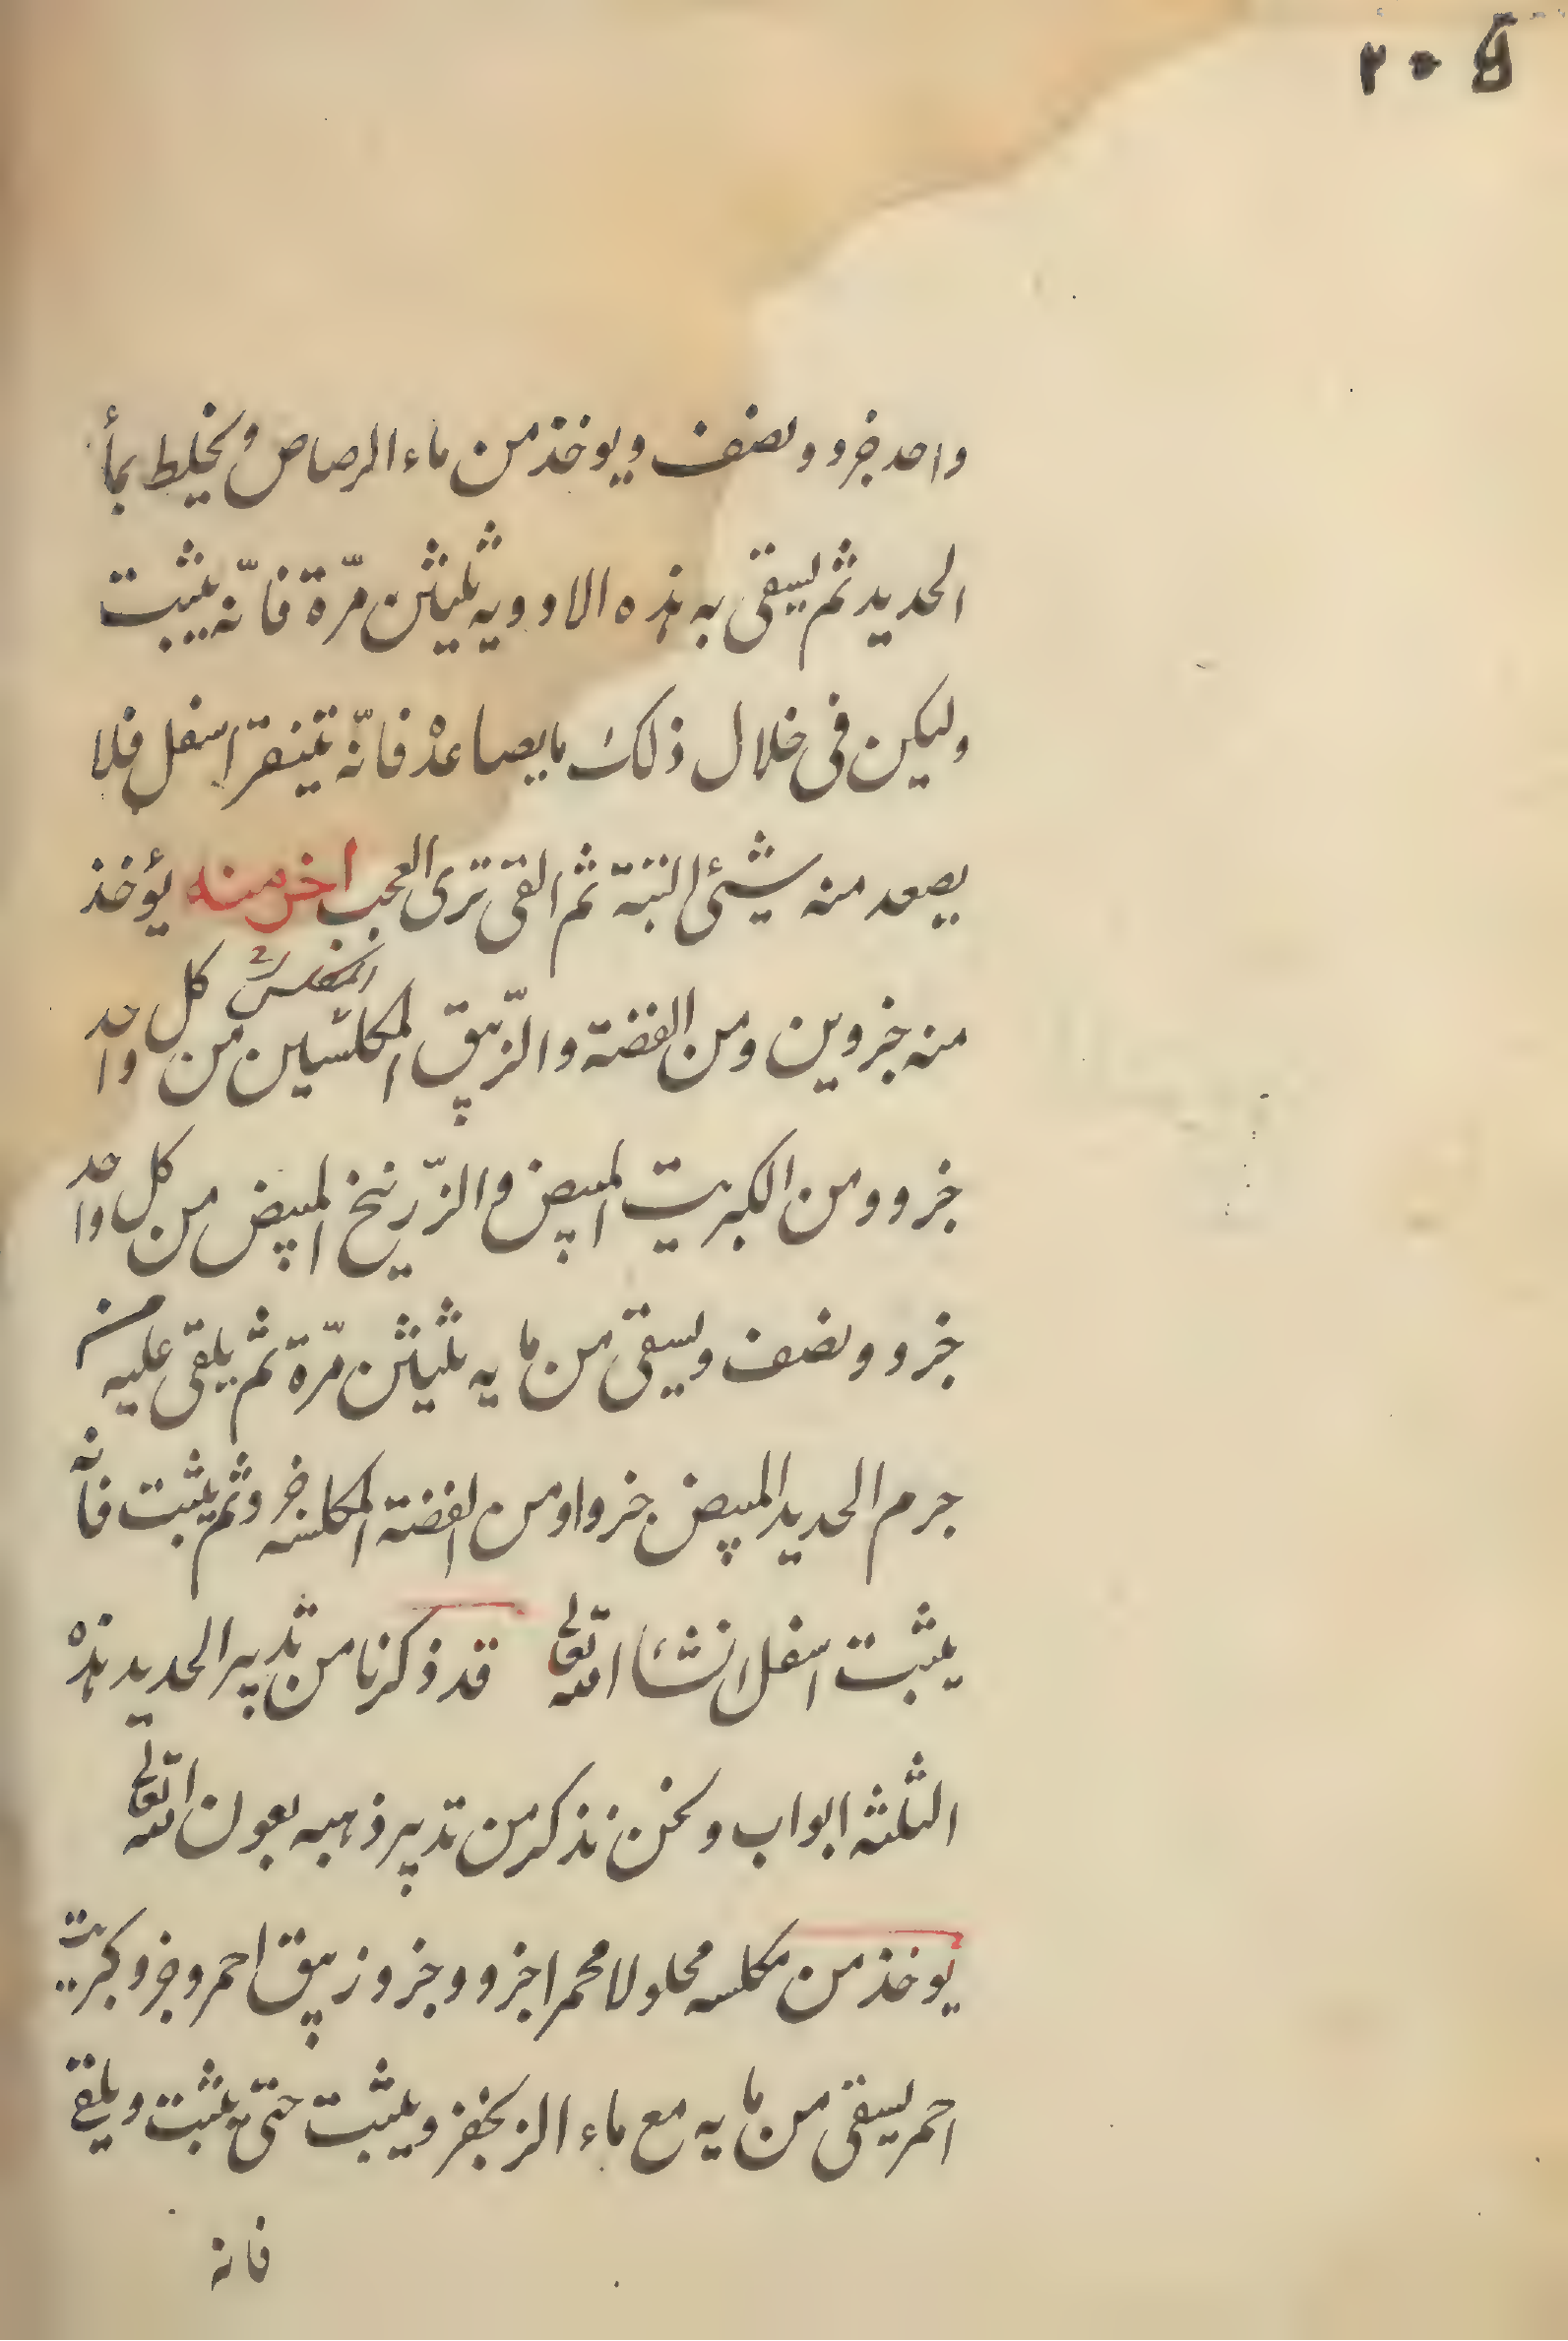 واحد جزو ونصف ويوخذ من ماء الرصاص ويخلط بمأ
الحديد ثم يسقى به هذه الادويه ثليثن مرّة فانّه يثبت
وليكن فى خلال ذلك ما يصاعد فانّه اسفل فلا
يصعد منه شيئ البتة ثم القى ترى العجب اخر منه يؤخذ
منه جزوين ومن الفضة والزّيبق المكلسّين من كل واحد
جزو ومن الكبريت المبيض والزّرنيخ المبيض من كل واحد
جزو ونصف ويسقى من مايه ثليثن مرّة ثم يلقى عليه من
جرم الحديد المبيض جزوا ومن الفضة المكلسه جزو ثم يثبت فانّه
يثبت اسفل انشاء الله تعالى قد ذكرنا من تدبير الحديد هذه
الثلثه ابواب ونحن نذكر من تدبير ذهبه بعون الله تعالى
يوخذ من مكلسه محلولا محمرا جزو وجزو زيبق احمر وجزو كبريت
احمر يسقى من مايه مع ماء الزنجفر ويثبت حتى يثبت ويلقى
فانه